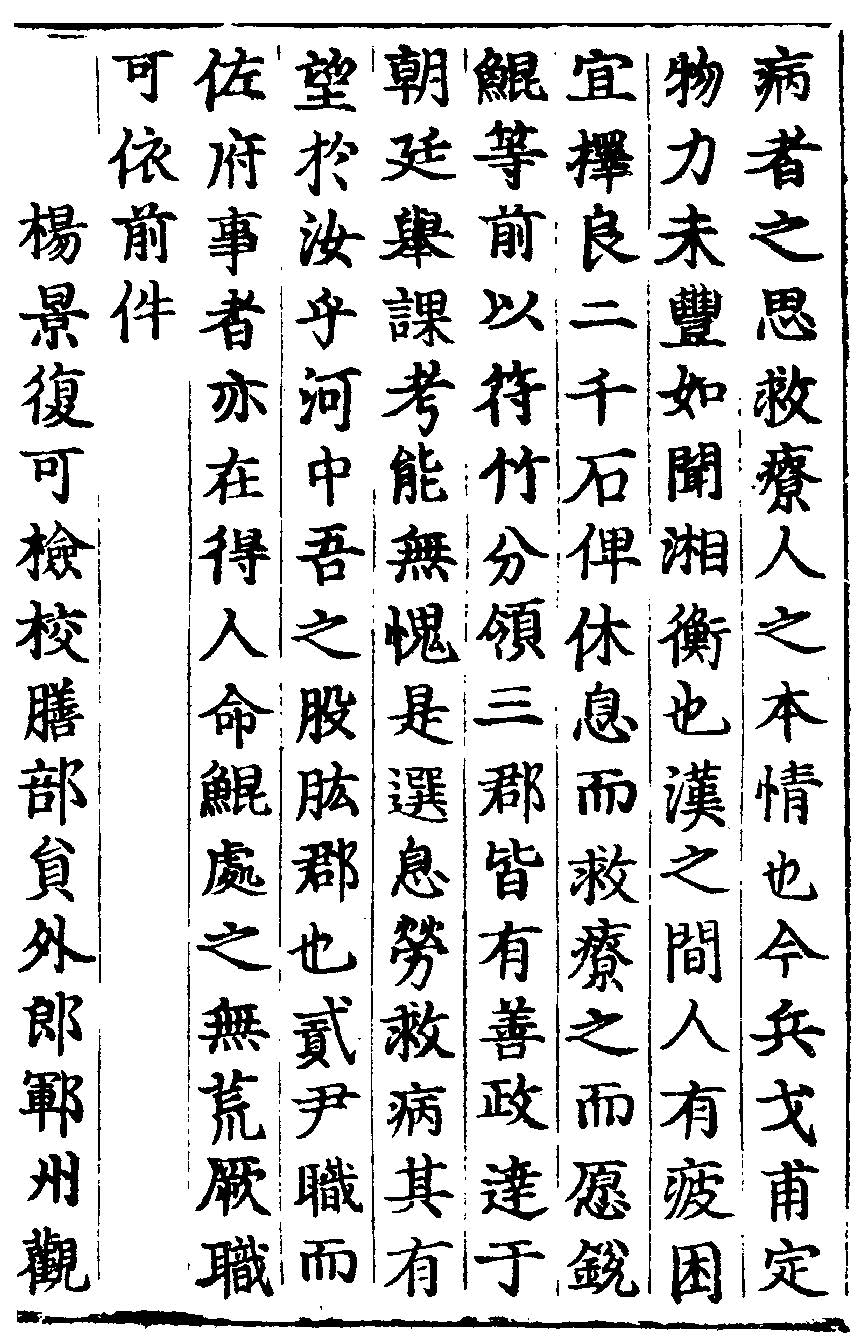 病者之思救療人之本情也今兵戈甫定
物力未豐如聞湘衡也漢之間人有疲困
宜擇良二千石俾休息而救療之而愿銳
鯤等前以符竹分領三郡皆有善政達于
朝廷舉課考能無愧是選息勞救病其有
望於汝乎河中吾之股肱郡也貳尹職而
佐府事者亦在得人命鯤處之無荒厥職
可依前件
楊景復可檢校膳部貟外郎鄆州觀